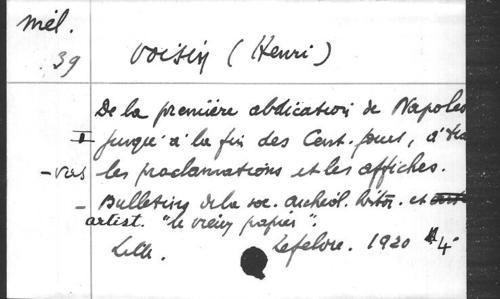 Mél.
39 Voisin (Henri)
De la première abdication de Napole
I jusqu'à la fin des Cent-jours, à tra
-vers les proclamations et les affiches.
- Bulletin de la soc. archéol. histor. et
artist. "le vieux papier".
Lille. Lefebvre. 1920 4°